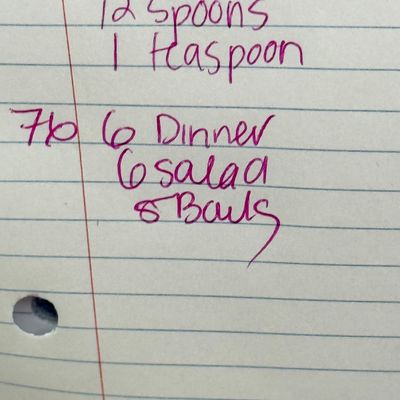 12 spoons
1 teaspoon
76 6 Dinner
6 salad
8 Bowls